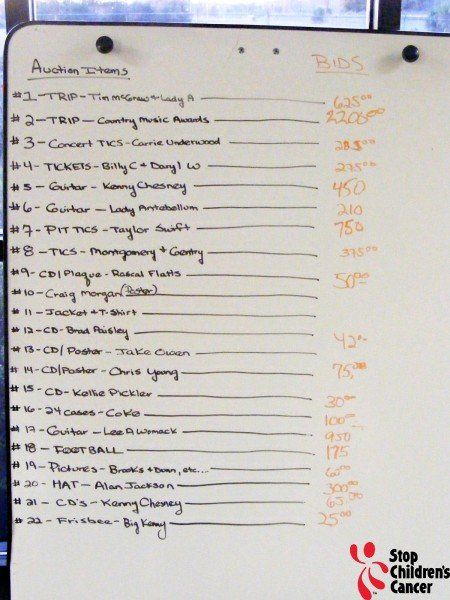 Auction Items BIDS
#1 - TRIP - Tim McGraw & Lady A 625.00
#2 - TRIP - Country Music Awards 2200.00
#3 - Concert TICS - Carrie Underwood 285.00
#4 - TICKETS - Billy C & Daryl W 275.00
#5 - Guitar - Kenny Chesney 450
#6 - Guitar - Lady Antebellum 210
#7 - PIT TICS - Taylor Swift 750
#8 - TICS - Montgomery & Gentry 375.00
#9 - CD/Plaque - Rascal Flatts 50.00
#10 - Craig Morgan (Poster)
#11 - Jacket & T-Shirt
#12 - CD - Brad Paisley 42.-
#13 - CD/Poster - Jake Owen
#14 - CD/Poster - Chris Young 75.00
#15 - CD - Kellie Pickler 30.00
#16 - 24 Cases - Coke 100.00
#17 - Guitar - Lee A Womack 950
#18 - FOOTBALL 175
#19 - Pictures - Brooks & Dunn, etc... 60.00
#20 - HAT - Alan Jackson 300.00
#21 - CD's - Kenny Chesney 65.00
#22 - Frisbee - Big Kenny 25.00
Stop
Children's
Cancer